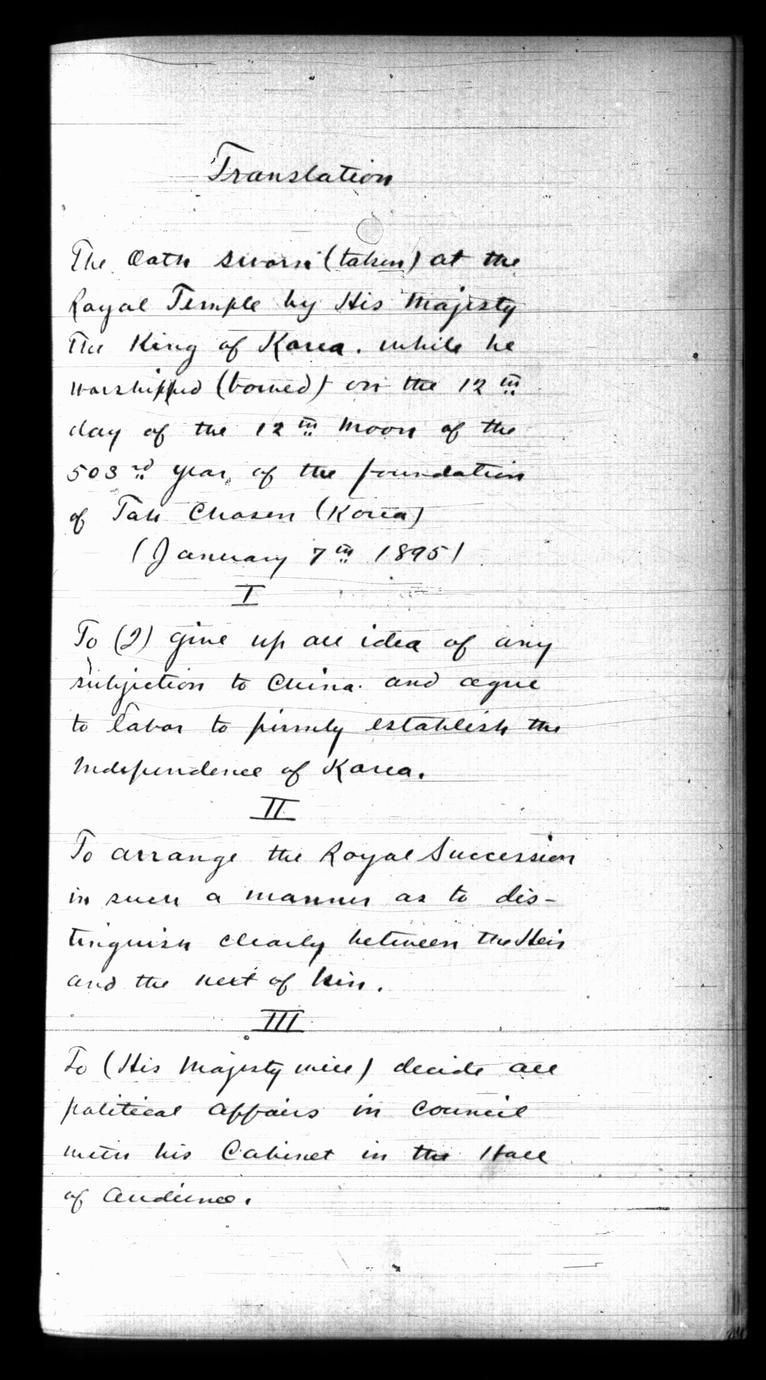 Translation
The Oath sworn (taken) at the
Royal Temple by His Majesty
The King of Korea. while he
worshipped (bowed) on the 12th
day of the 12th Moon of the
503rd year, of the foundation
of Tah Chosen (Korea)
(January 7th 1895)
I
To (I) give up all idea of any
subjection to China. and agree
to labor to firmly establish the
Independence of Korea.
II
To arrange the Royal Succession
in such a manner as to dis-
tinguish clearly between the Heir
and the next of kin.
III
To (His Majesty will) decide all
political affairs in council
with his Cabinet in the Hall
of Audience.